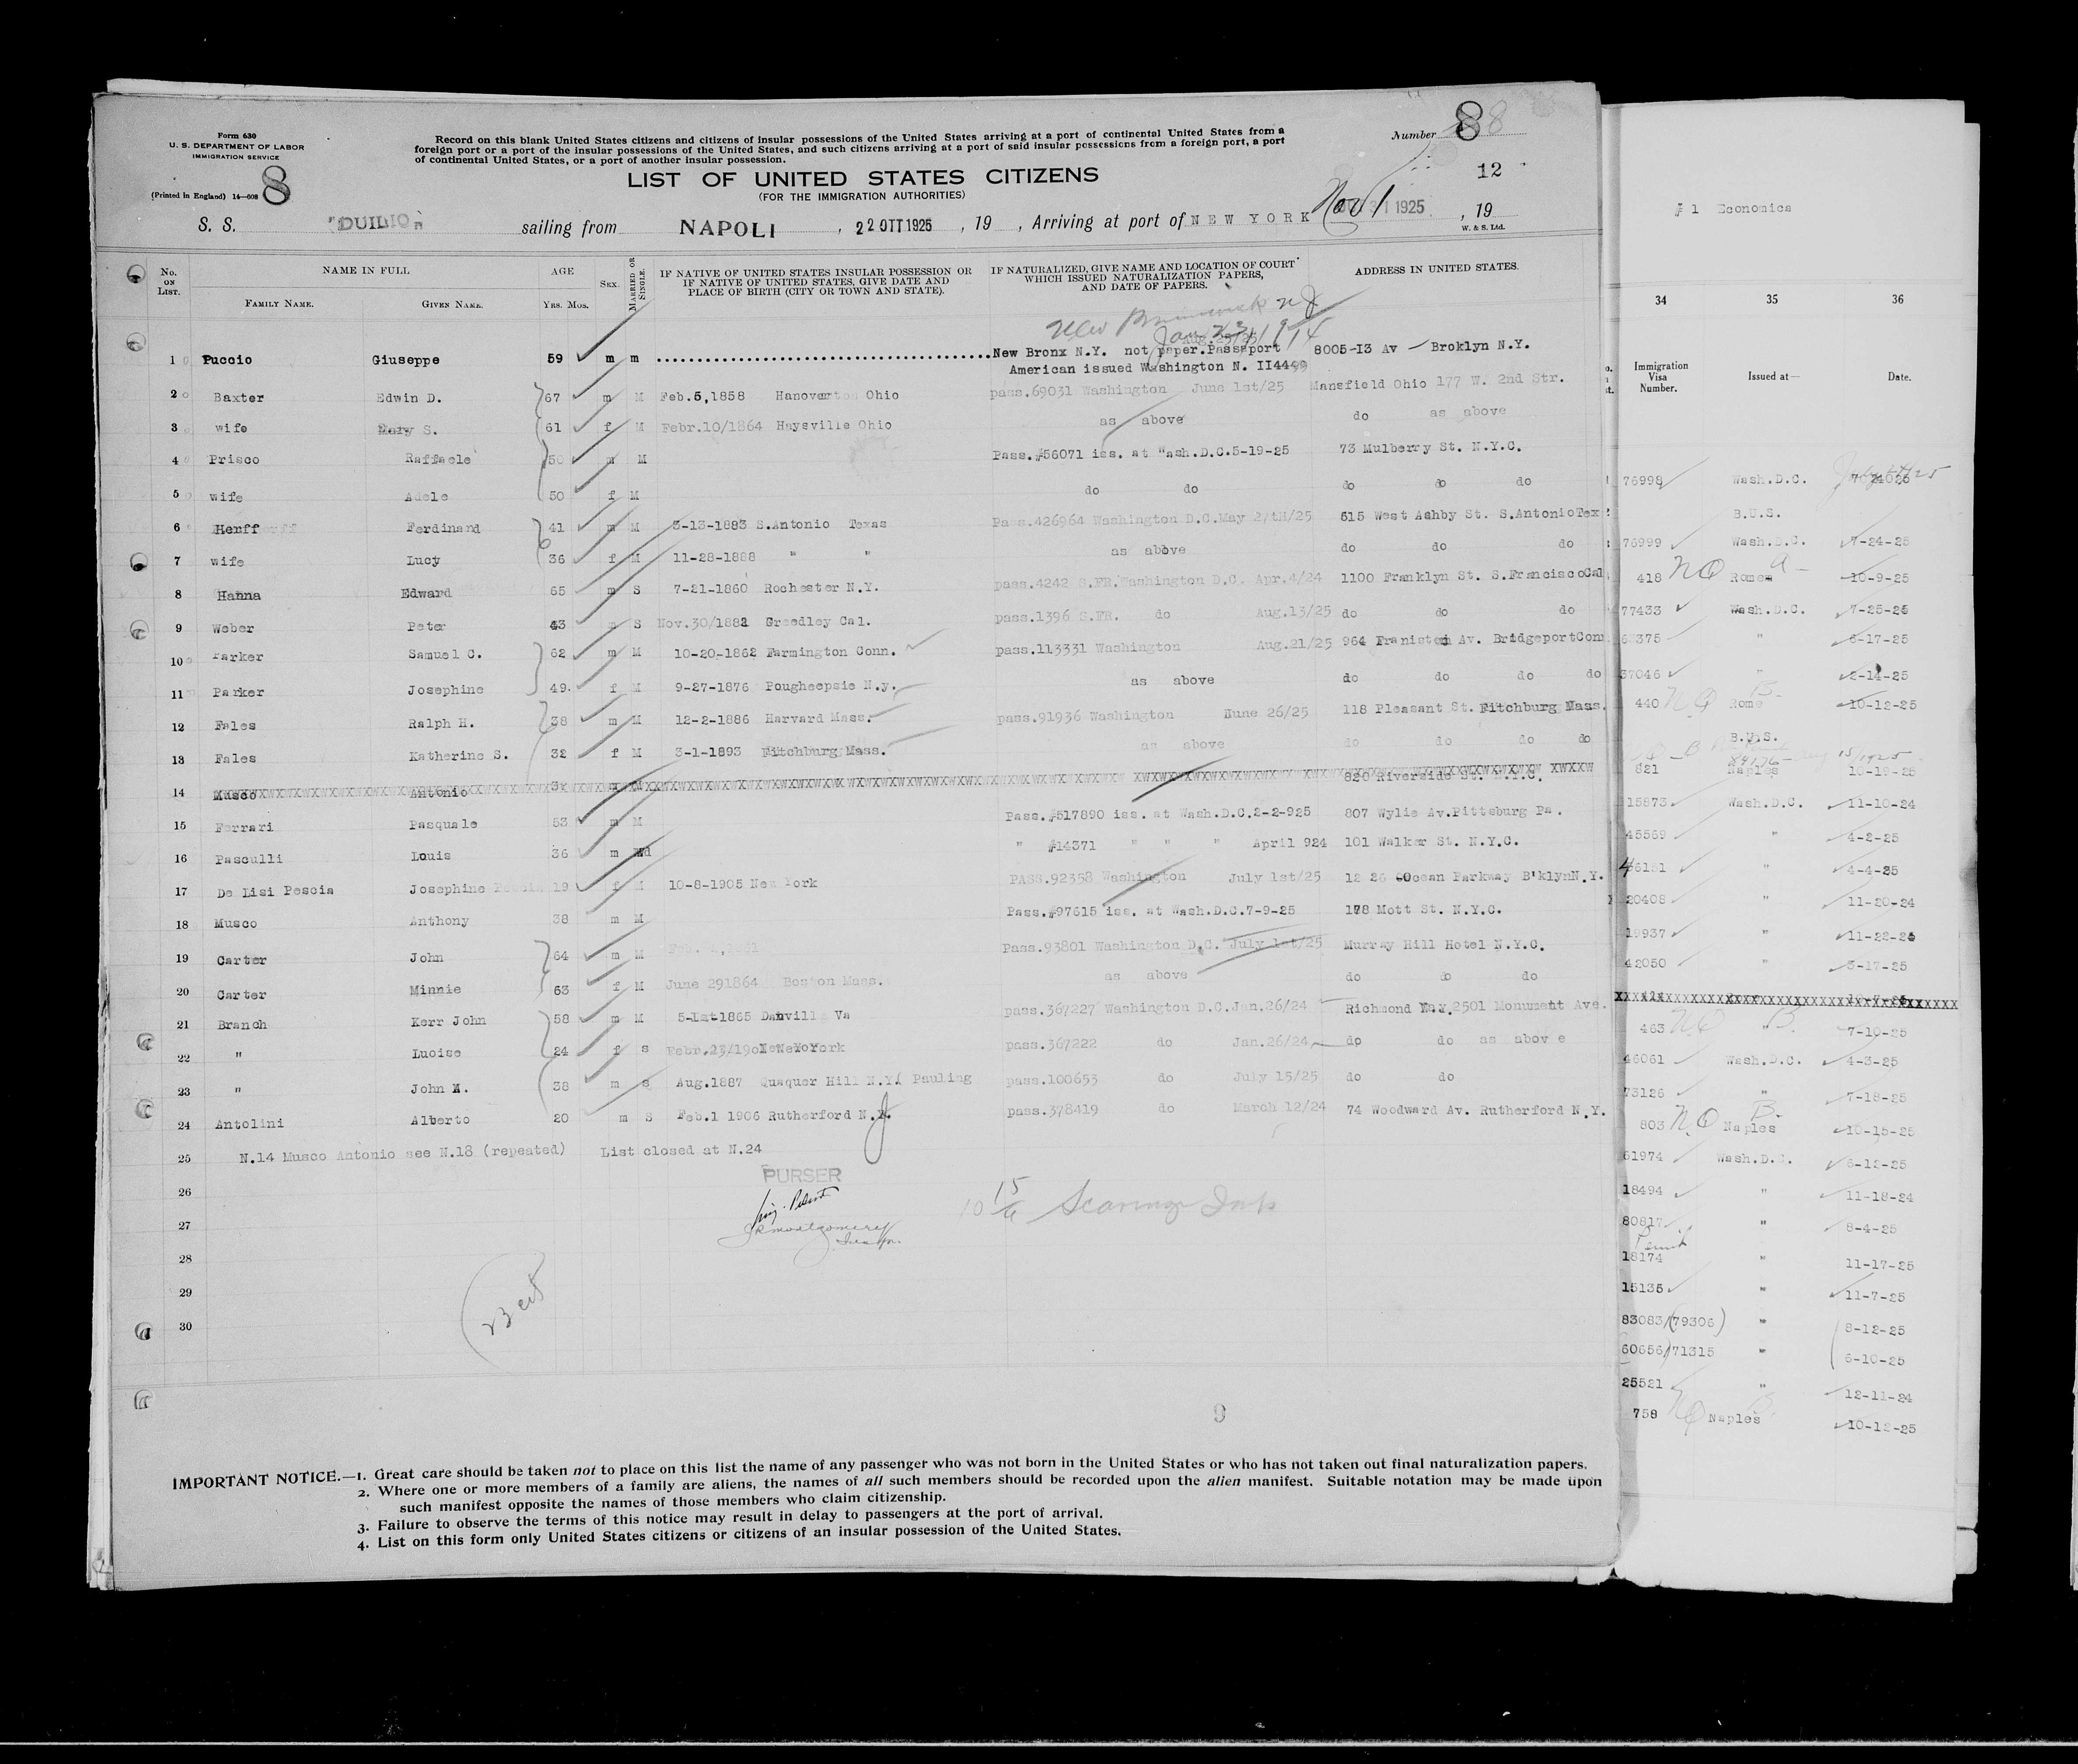 Form 630
U. S. DEPARTMENT OF LABOR
IMMIGRATION SERVICE
(Printed in England) 14—608
8
Record on this blank United States citizens and citizens of insular possessions of the United States arriving at a port of continental United States from a
foreign port or a port of the insular possessions of the United States, and such citizens arriving at a port of said insular possessions from a foreign port, a port
of continental United States, or a port of another insular possession.
Number 8
12
LIST OF UNITED STATES CITIZENS
(FOR THE IMMIGRATION AUTHORITIES)
S. S. "DUILIO" sailing from NAPOLI , 22 OTT 1925 , 19 , Arriving at port of NEW YORK Nov 1 1925 , 19
W. & S. Ltd.
No. ON LIST. NAME IN FULL AGE SEX. MARRIED OR SINGLE. IF NATIVE OF UNITED STATES INSULAR POSSESSION OR IF NATIVE OF UNITED STATES, GIVE DATE AND PLACE OF BIRTH (CITY OR TOWN AND STATE). IF NATURALIZED, GIVE NAME AND LOCATION OF COURT WHICH ISSUED NATURALIZATION PAPERS, AND DATE OF PAPERS. ADDRESS IN UNITED STATES.
FAMILY NAME. GIVEN NAME. YRS. MOS.
New Brunswick N J
1 Puccio Giuseppe 59 m m New Bronx N.Y. not paper.Passport 8005-I3 Av Broklyn N.Y.
American issued Washington N. II4499
2 Baxter Edwin D. 67 m M Feb.5,1858 Hanoverton Ohio pass.69031 Washington June 1st/25 Mansfield Ohio 177 W. 2nd Str.
3 wife Mary S. 61 f M Febr.10/1864 Hayeville Ohio as above do as above
4 Prisco Raffaele 50 m M Pass.#56071 iss. at Wash.D.C.5-19-25 73 Mulberry St. N.Y.C.
5 wife Adele 50 f M do do do do do
6 Herff Ferdinand 41 m M 3-13-1883 S.Antonio Texas Pass.426964 Washington D.C.May 515 West Ashby St. S.AntonioTex
7 wife Lucy 36 f M 11-28-1888 " " as above do do do
8 Hanna Edward 65 m S 7-21-1860 Rochester N.Y. pass.4242 S.FR.Washington D.C. Apr.4/24 1100 Franklyn St. S.FranciscoCal
9 Weber Peter 43 m S Nov.30/1882 Greedley Cal. pass.1396 S.FR. do Aug.13/25 do do do
10 Parker Samuel C. 62 m M 10-20-1862 Farmington Conn. pass.113331 Washington Aug.21/25 964 Av. BridgeportConn
11 Parker Josephine 49. f M 9-27-1876 Pougheepsie N.y. as above do do do do
12 Fales Ralph H. 38 m M 12-2-1886 Harvard Mass. pass.91936 Washington June 26/25 118 Pleasant St. Fitchburg Mass.
13 Fales Katherine S. 32 f M 3-1-1893 Fitchburg Mass. as above do do do do
14 Musco Antonio m M 820 Riverside St. N.Y.C.
15 Ferrari Pasquale 53 m M Pass.#517890 iss. at Wash.D.C.2-2-925 807 Wylie Av.Pittsburg Pa.
16 Pasculli Louis 36 m Wd " #14371 " " " April 924 101 Walker St. N.Y.C.
17 De Lisi Pescia Josephine 19 f M 10-8-1905 New York PASS.92358 Washington July 1st/25 12 26 Ocean Parkway B'klynN.Y.
18 Musco Anthony 38 m M Pass.#97615 iss. at Wash.D.C.7-9-25 178 Mott St. N.Y.C.
19 Carter John 64 m M Pass.93801 Washington D.C. July 1st/25 Murray Hill Hotel N.Y.C.
20 Carter Minnie 63 f M June 291864 Boston Mass. as above do do do
21 Branch Kerr John 58 m M 5-1st1865 Danville Va pass.367227 Washington D.C.Jan.26/24 Richmond 2501 Monument Ave.
22 " Luoise 24 f s New York pass.367222 do Jan.26/24 do do as above
23 " John M. 38 m s Aug.1887 Quaquer Hill N.Y. Pauling pass.100653 do July 15/25 do do
24 Antolini Alberto 20 m S Feb.1 1906 Rutherford N.J. pass.378419 do March 12/24 74 Woodward Av. Rutherford N.Y.
25 N.14 Musco Antonio see N.18 (repeated) List closed at N.24
PURSER
26
27
28
29
30
9
IMPORTANT NOTICE.—1. Great care should be taken not to place on this list the name of any passenger who was not born in the United States or who has not taken out final naturalization papers.
2. Where one or more members of a family are aliens, the names of all such members should be recorded upon the alien manifest. Suitable notation may be made upon
such manifest opposite the names of those members who claim citizenship.
3. Failure to observe the terms of this notice may result in delay to passengers at the port of arrival.
4. List on this form only United States citizens or citizens of an insular possession of the United States.
# 1 Economica
34 35 36
Immigration Visa Number. Issued at— Date.
76998 Wash.D.C.
B.U.S.
76999 Wash.D.C. 7-24-25
418 NQ Rome 10-9-25
77433 Wash.D.C. 7-25-25
375 " 6-17-25
37046 " 2-14-25
440 NQ Rome 10-12-25
B.U.S.
821 Naples 10-19-25
15873 Wash.D.C. 11-10-24
45569 " 4-2-25
46151 " 4-4-25
20408 " 11-20-24
19937 " 11-22-24
42050 " 3-17-25
463 NQ " 7-10-25
46061 Wash.D.C. 4-3-25
73126 " 7-18-25
803 NQ Naples 10-15-25
61974 Wash.D.C. 6-12-25
18494 " 11-18-24
80817 " 8-4-25
Permit
18174 " 11-17-25
15135 " 11-7-25
83083/(79306) " 8-12-25
60656/71315 " 6-10-25
25521 " 12-11-24
758 NQ Naples 10-12-25